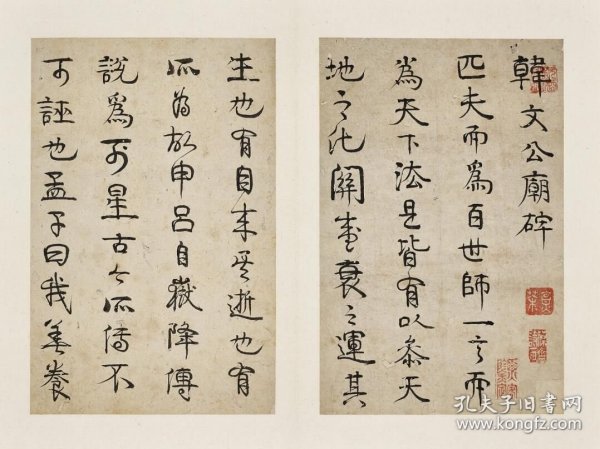 韓文公廟碑
匹夫而為百世師一言而
為天下法是皆有以參天
地之化關盛衰之運其
生也有自来其逝也有
所為故申呂自嶽降傳
說為列星古今所傳不
可誣也孟子曰我善養
孔夫子旧书网
www.kongfz.com